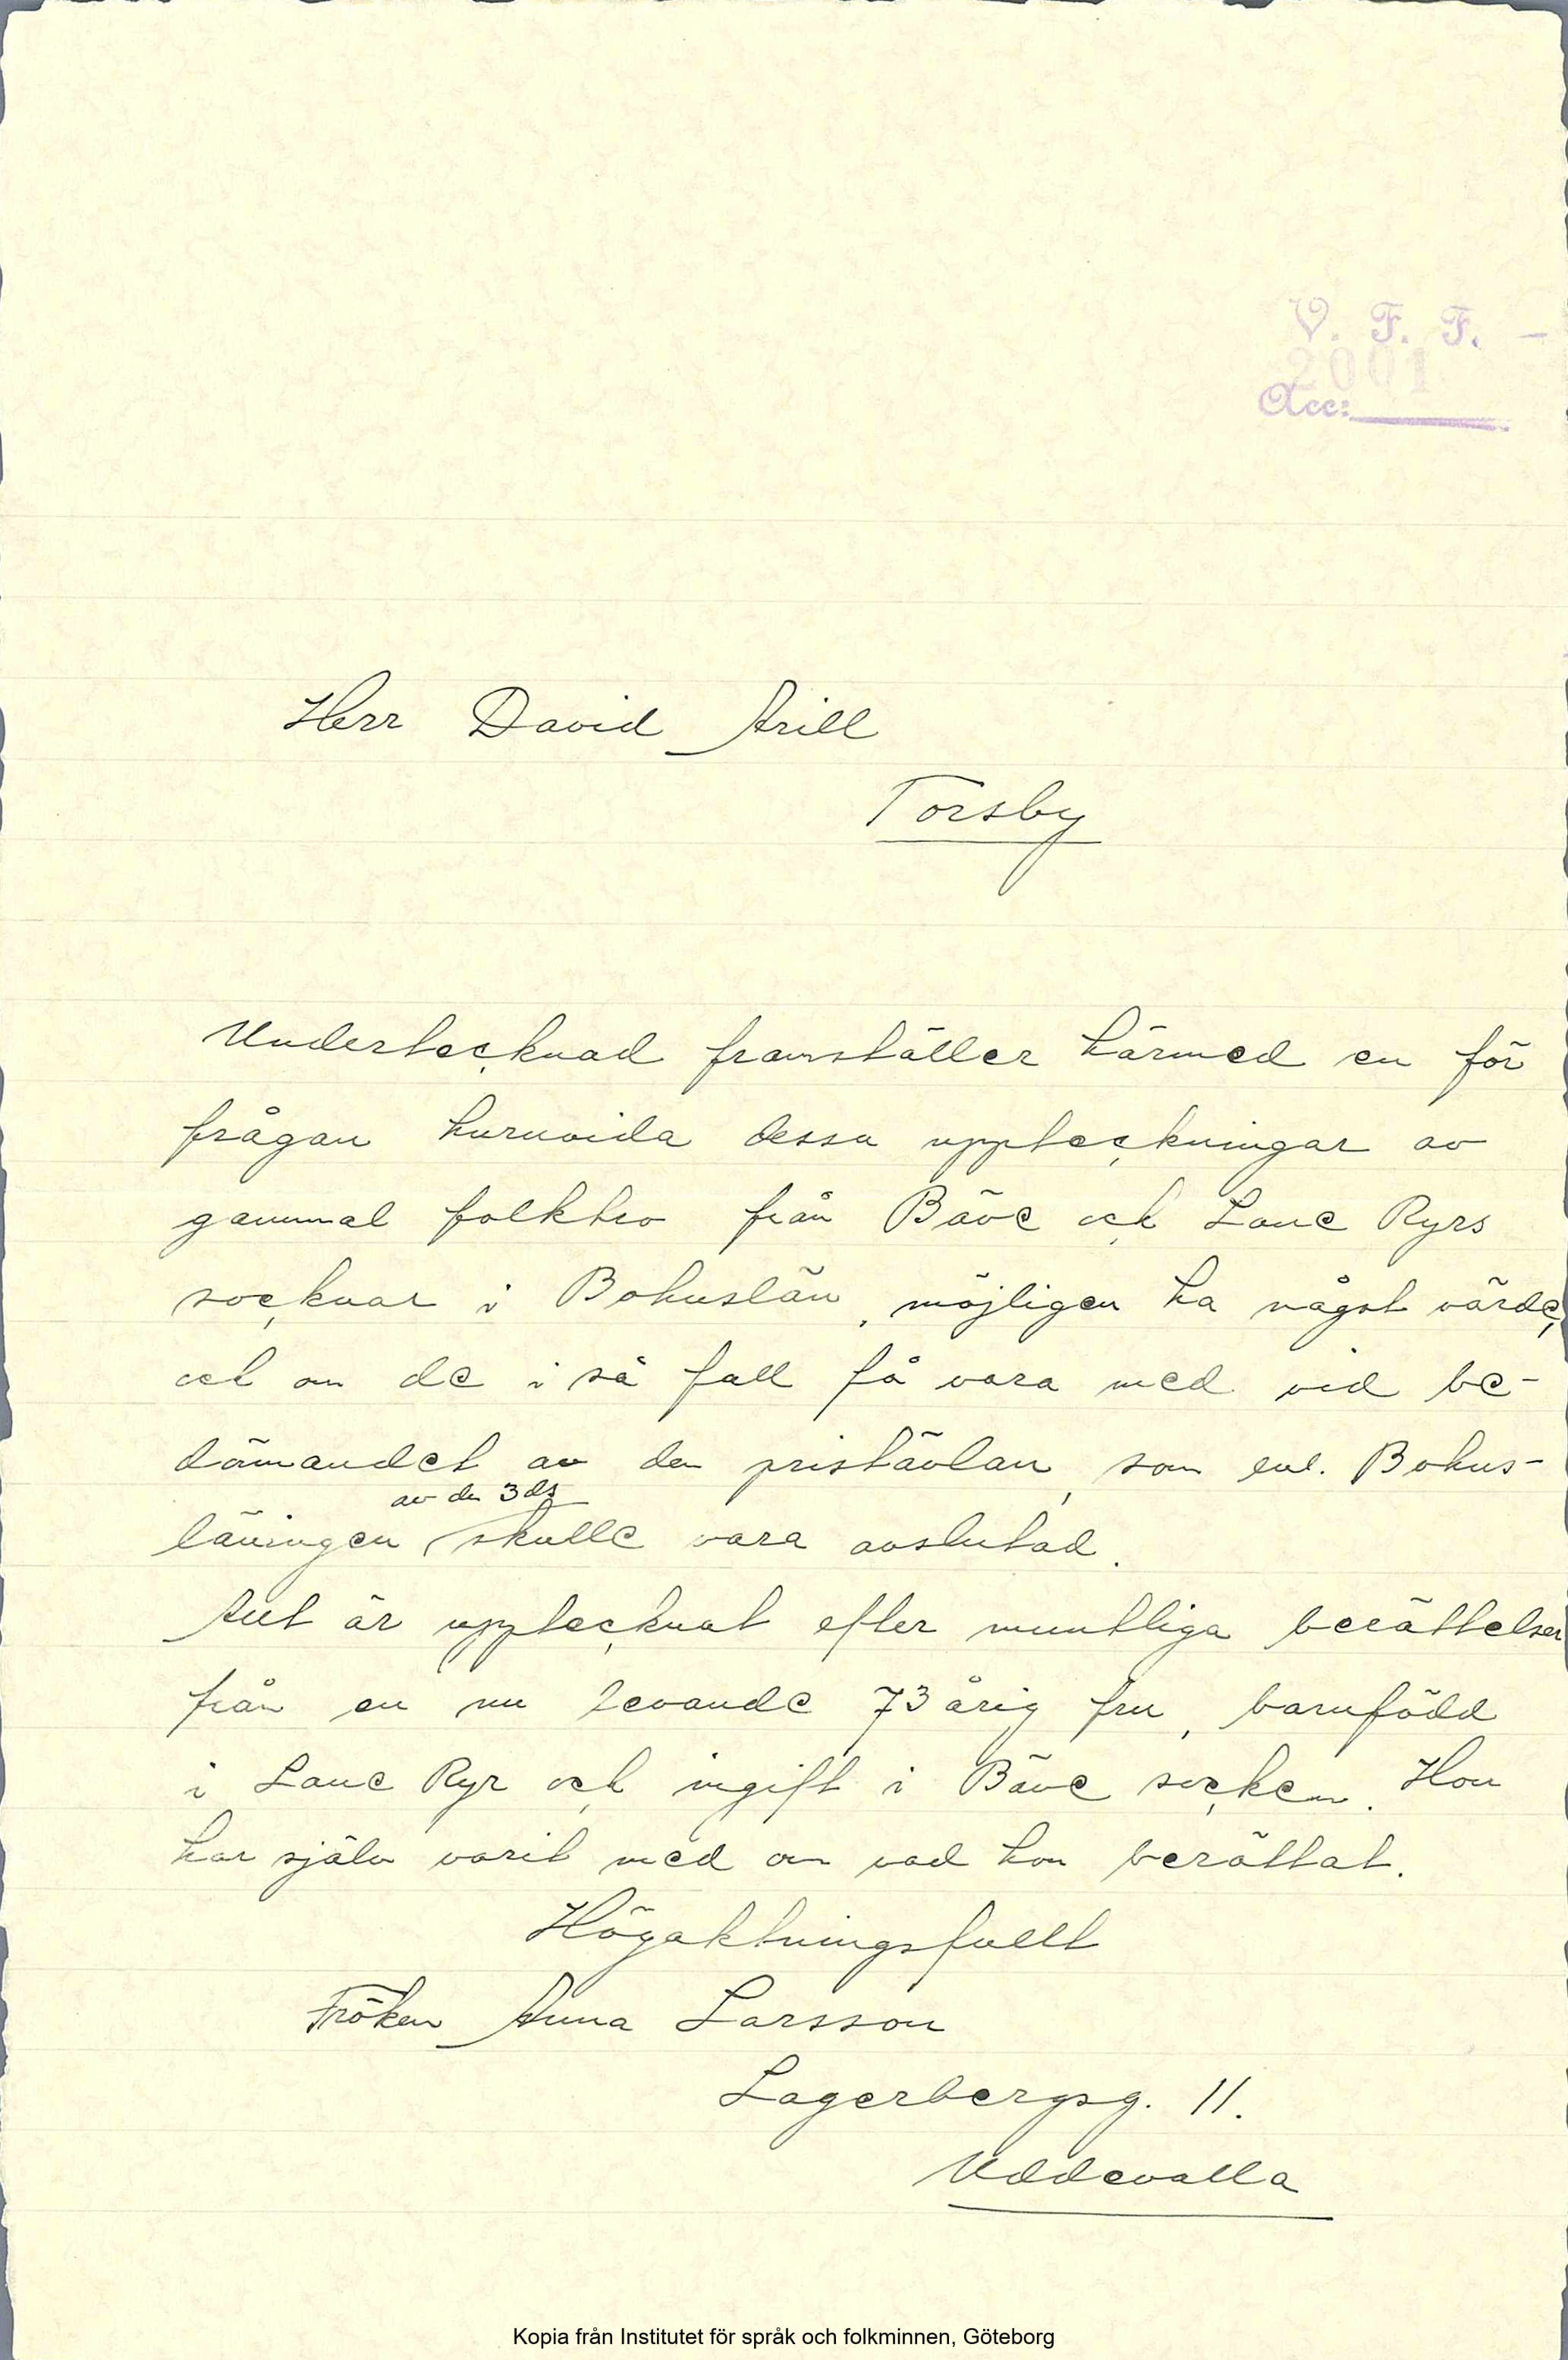 V. F. F. –
2001
Acc:
Herr David Arill
Torsby
Undertecknad framställer härmed en för
frågan huruvida dessa uppteckningar av
gammal folktro från Bäve och Lane Ryrs
socknar i Bohuslän, möjligen ha något värde,
och om de i så fall få vara med vid be-
dömandet av den pristävlan, som enl. Bohus-
av den 3 ds
läningen skulle vara avslutad.
Allt är upptecknat efter muntliga berättelser
från en nu levande 73 årig fru, barnfödd
i Lane Ryr och ingift i Bäve socken. Hon
har själv varit med om vad hon berättat.
Högaktningsfullt
Fröken Anna Larsson
Lagerbergsg. 11.
Uddevalla
Kopia från Institutet för språk och folkminnen, Göteborg